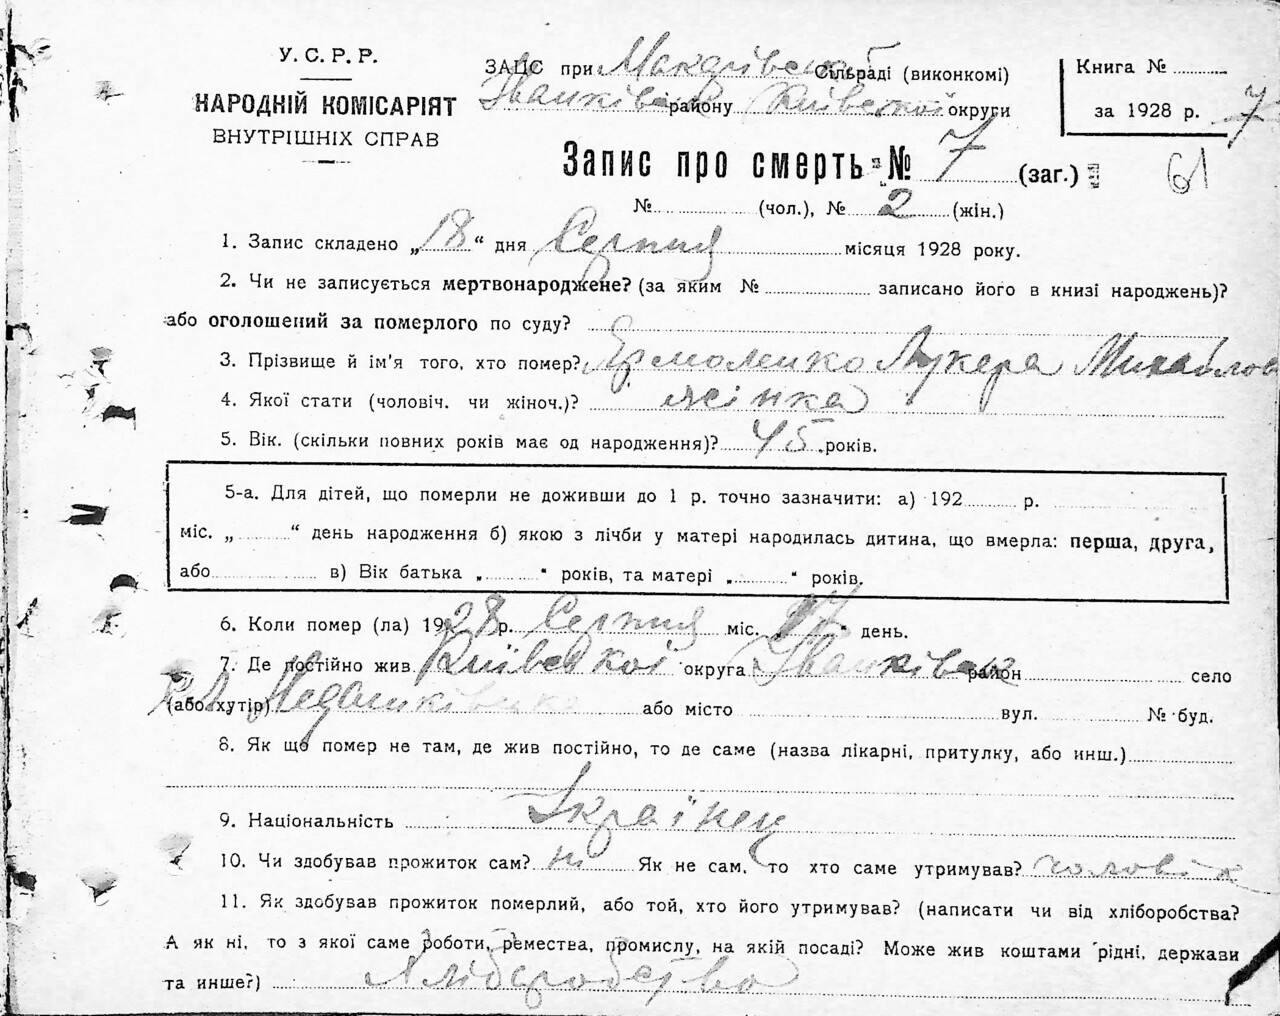 У. С. Р. Р.
НАРОДНІЙ КОМІСАРІЯТ
ВНУТРІШНІХ СПРАВ
ЗАЦС при Макарівській Сільраді (виконкомі)
Іванківськ району Київської округи
Книга №
за 1928 р. 7
61
Запис про смерть № 7 (заг.)
№ (чол.), № 2 (жін.)
1. Запис складено „18“ дня Серпня місяця 1928 року.
2. Чи не записується мертвонароджене? (за яким № записано його в книзі народжень)?
або оголошений за померлого по суду?
3. Прізвище й ім'я того, хто помер? Єрмоленко Лукера Михайлов
4. Якої стати (чоловіч. чи жіноч.)? жінка
5. Вік. (скільки повних років має од народження)? 45 років.
5-а. Для дітей, що померли не доживши до 1 р. точно зазначити: а) 192 р.
міс. „ “ день народження б) якою з лічби у матері народилась дитина, що вмерла: перша, друга,
або в) Вік батька „ “ років, та матері „ “ років.
6. Коли помер (ла) 1928 р. Серпня міс. 17 “ день.
7. Де постійно жив Київської округа Іванківськ район село
(або хутір) або місто вул. № буд.
8. Як що помер не там, де жив постійно, то де саме (назва лікарні, притулку, або инш.)
9. Національність Українец
10. Чи здобував прожиток сам? ні Як не сам, то хто саме утримував? чоловік
11. Як здобував прожиток померлий, або той, хто його утримував? (написати чи від хліборобства?
А як ні, то з якої саме роботи, ремества, промислу, на якій посаді? Може жив коштами рідні, держави
та инше?) Хліборобство